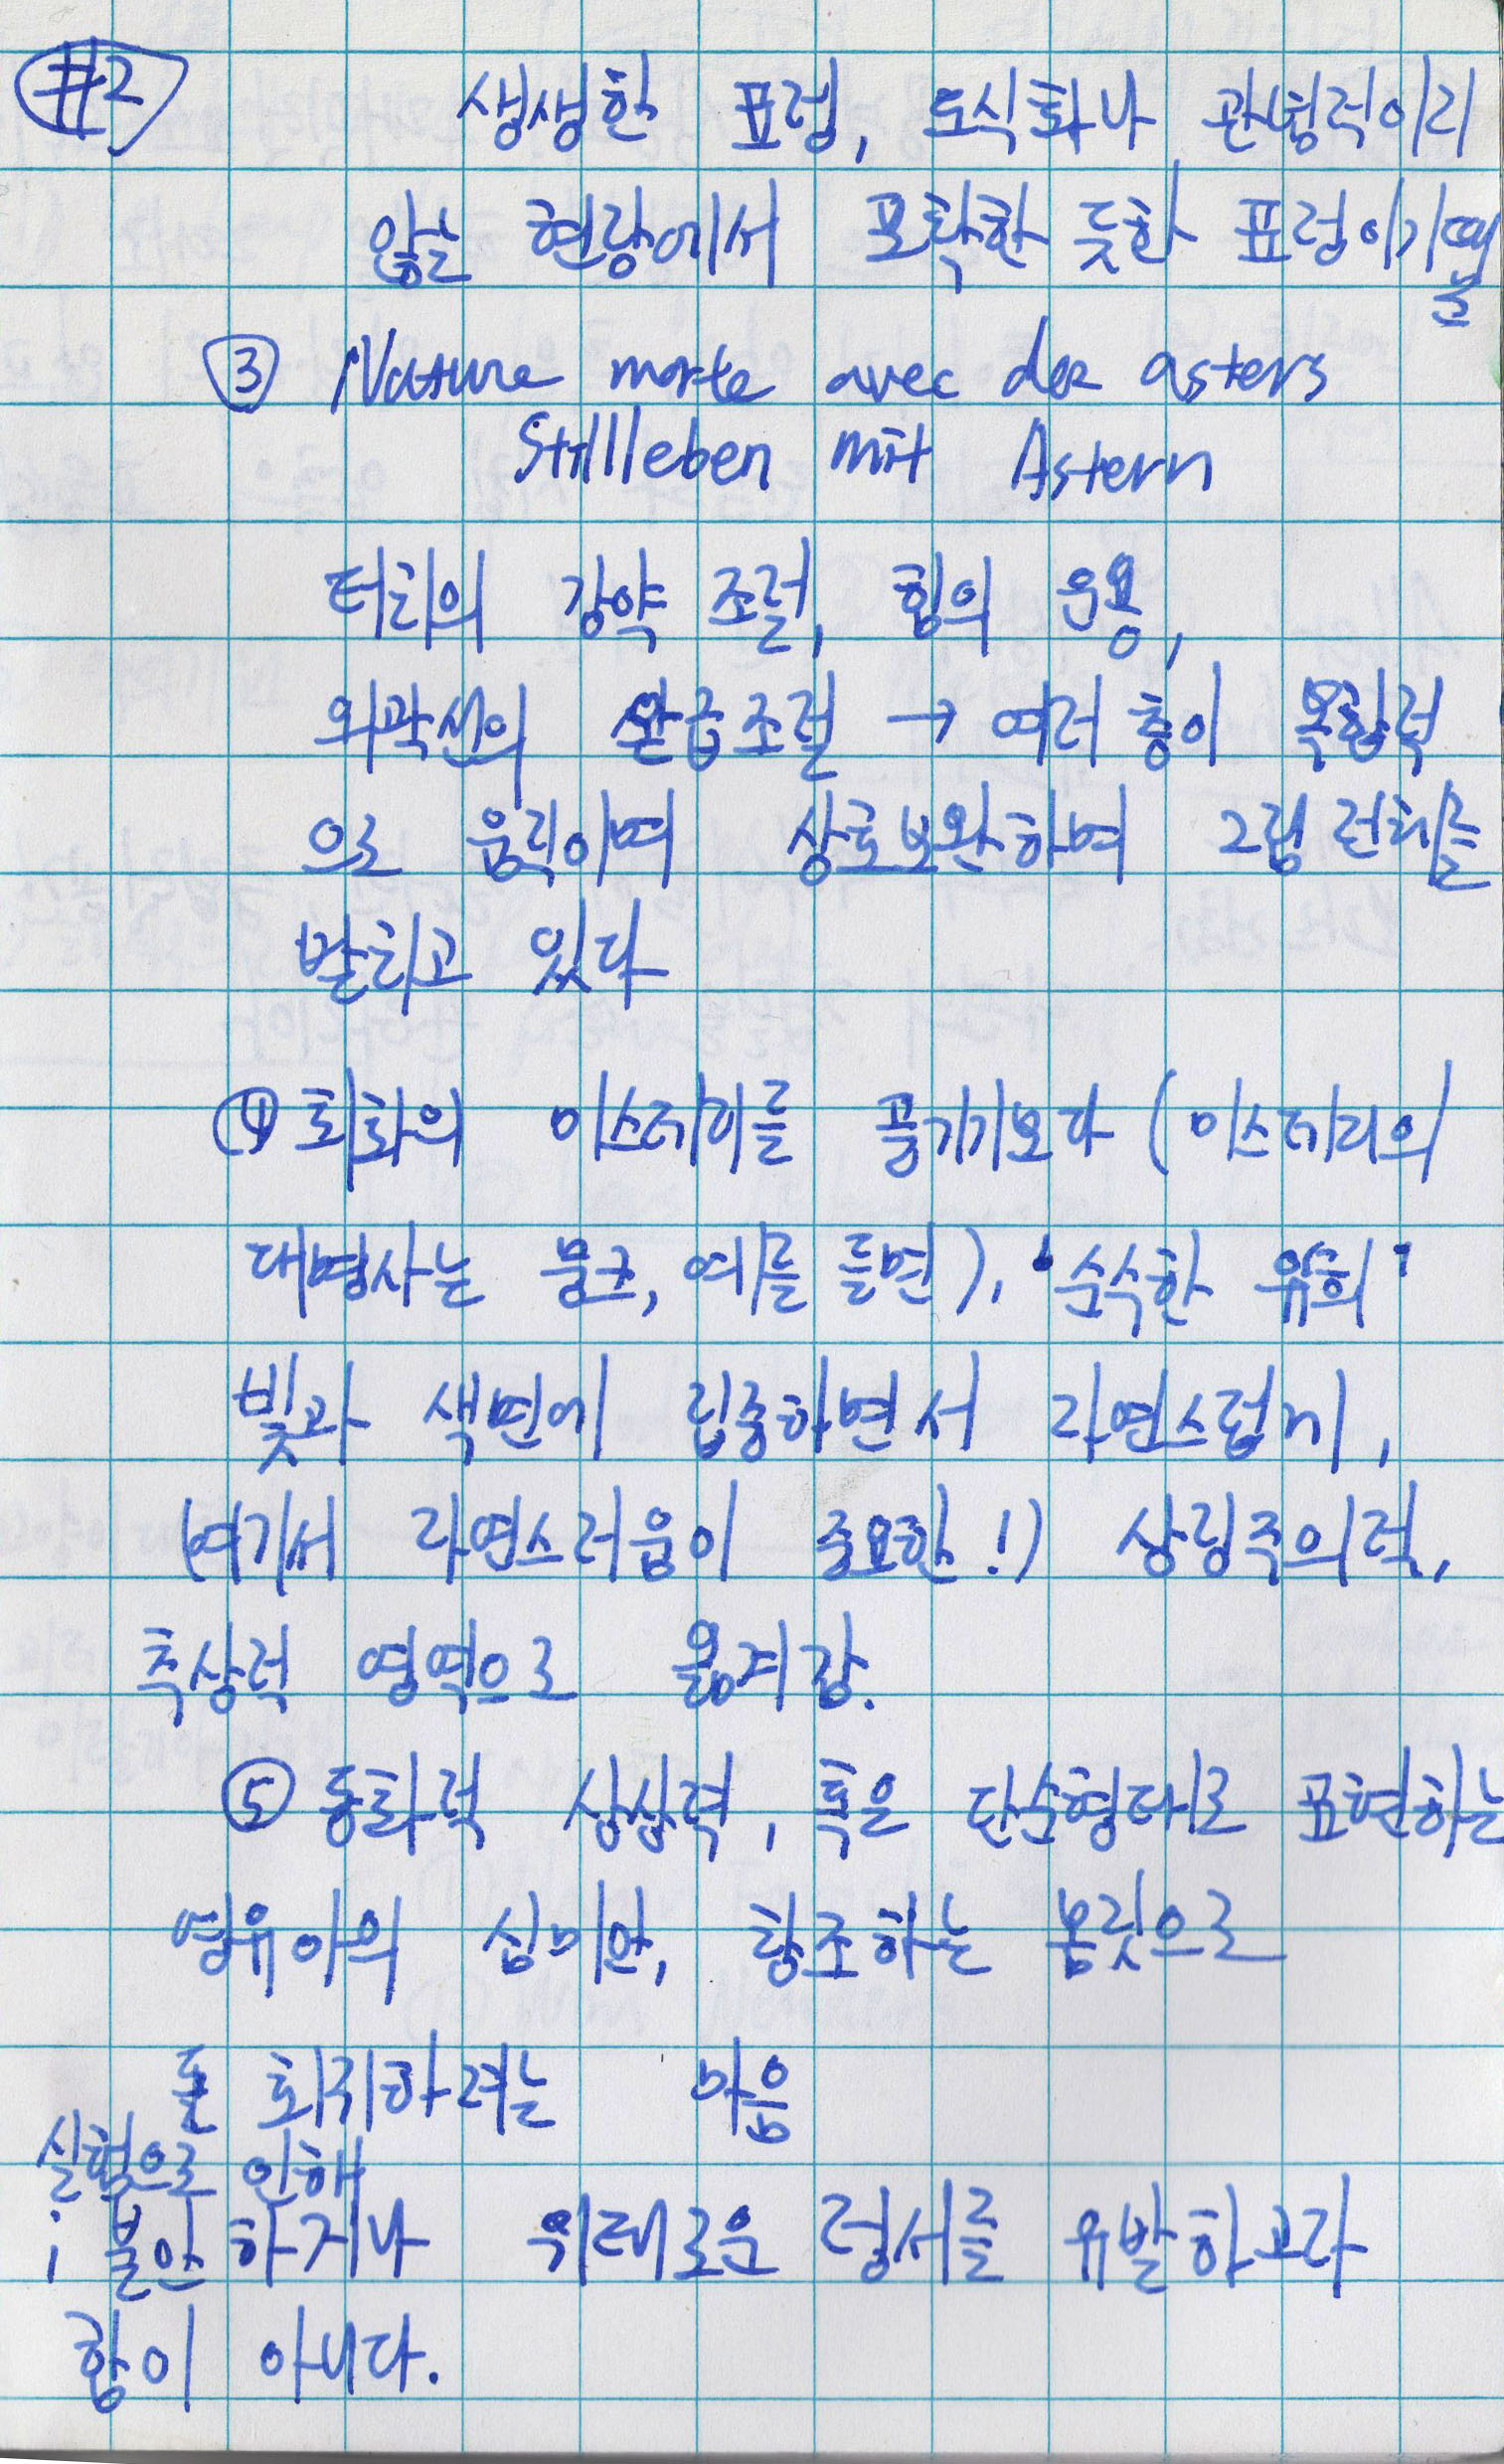 #2
생생한 표정, 도식화나 관념적이지
않는 현장에서 포착한 듯한 표정이기 때문
③ Nature morte avec des asters
Stillleben mit Astern
터치의 강약 조절, 힘의 운용,
외곽선의 완급조절 → 여러 층이 복합적
으로 움직이며 상호보완하며 그림 전체를
받치고 있다
④ 회화의 미스테리를 풍기기보다 (미스테리의
대명사는 뭉크, 예를 들면), '순수한 유희'
빛과 색면에 집중하면서 자연스럽게,
(여기서 자연스러움이 중요한!) 상징주의적,
추상적 영역으로 옮겨감.
⑤ 동화적 상상력, 혹은 단순형태로 표현하는
영유아의 심미안, 창조하는 몸짓으로
회귀하려는 마음
실험으로 인해
; 불안하거나 위태로운 정서를 유발하고자
함이 아니다.